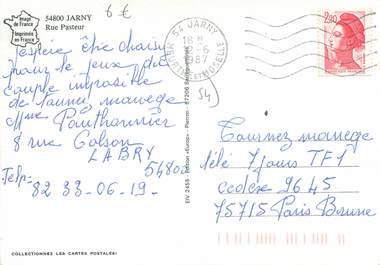 Image
de France
Imprimée
en France
54800 JARNY
Rue Pasteur
6 €
54 JARNY
18 H
-6
1987
MEURTHE ET MOSELLE
2,20
54
J'espère être choisi
pour le jeux du
couple impossible
de Tournez manege
Mme
8 rue
LABRY
54800
Telp=
82 33-06-19-
Tournez manege
télé 7 Jours TF1
cedex 9645
75715 Paris Brune
EIV 2455 - Edition «Europ» - Pierron - 57206
COLLECTIONNEZ LES CARTES POSTALES!